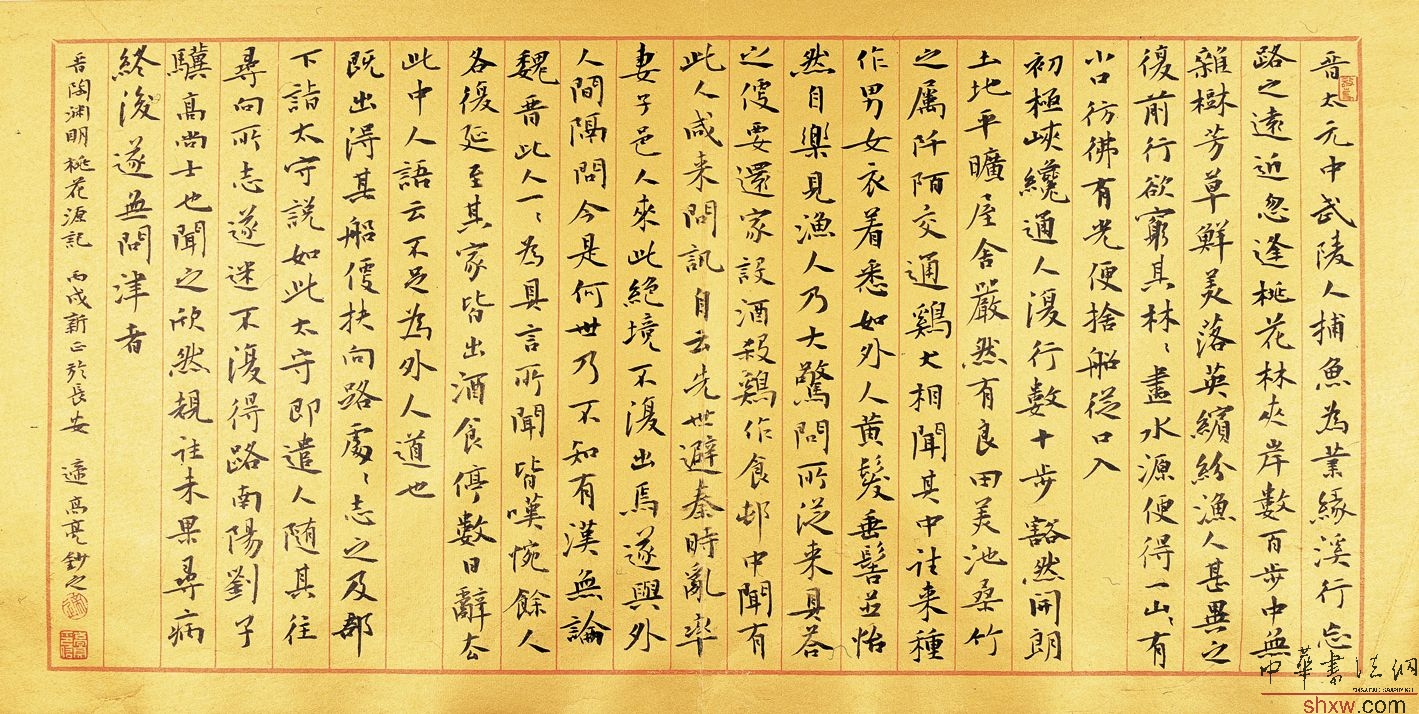 晉太元中武陵人捕魚為業緣溪行忘
路之遠近忽逢桃花林夾岸數百步中無
雜樹芳草鮮美落英繽紛漁人甚異之
復前行欲窮其林〻盡水源便得一山〻有
小口彷彿有光便捨船從口入
初極峽纔通人復行數十步豁然開朗
土地平曠屋舍嚴然有良田美池桑竹
之屬阡陌交通鷄犬相聞其中往来種
作男女衣着悉如外人黄髮垂髫並怡
然自樂見漁人乃大驚問所從来具答
之便要還家設酒殺鷄作食邨中聞有
此人咸来問訊自云先世避秦時亂率
妻子邑人來此絕境不復出焉遂與外
人間隔問今是何世乃不知有漢無論
魏晉此人一〻為具言所聞皆嘆惋餘人
各復延至其家皆出酒食停數日辭去
此中人語云不足為外人道也
既出得其船便扶向路處〻志之及郡
下詣太守說如此太守即遣人随其往
尋向所志遂迷不復得路南陽劉子
驥高尚士也聞之欣然親往未果尋病
終後遂無問津者
晉陶淵明桃花源記 丙戌新正於長安 遠高亮鈔之
中華書法網
shxw.com